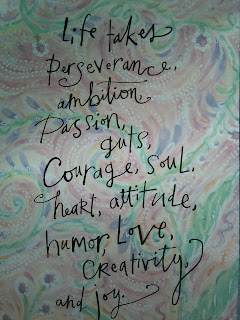 Life takes
perseverance,
ambition,
passion,
guts,
Courage, soul,
heart, attitude,
humor, Love,
Creativity,
and joy.